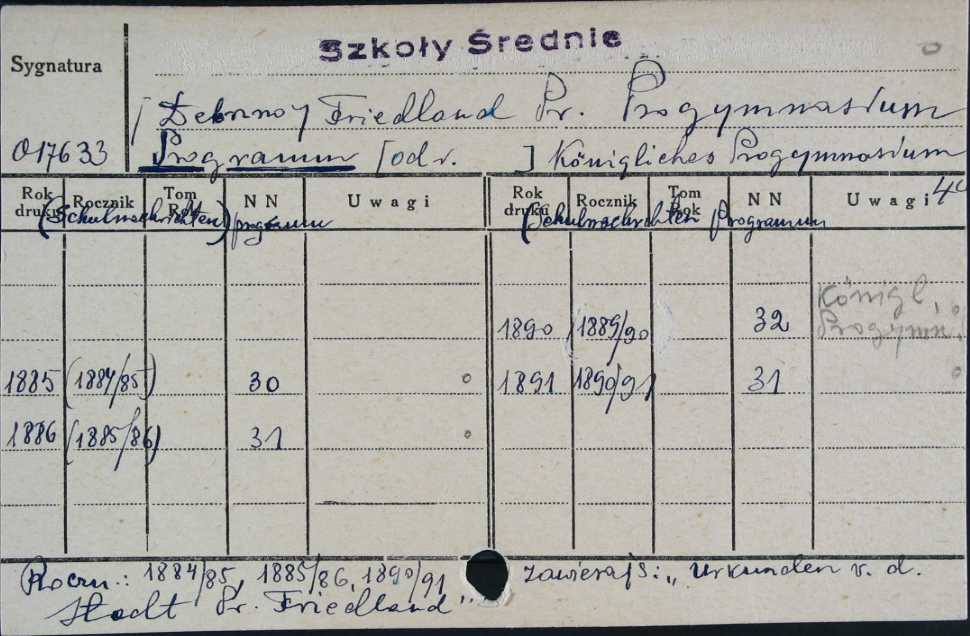 Szkoły Średnie
Sygnatura
[Debrzno] Friedland Pr. Progymnasium
017633 Programm [odr. ] Königliches Progymnasium
Rok druku Rocznik Tom Rok NN Uwagi Rok druku Rocznik Tom Rok NN Uwagi
(Schulnachrichten) programm (Schulnachrichten Programm
1890 (1889/90) 32 Königl. Progymn.
1885 (1884/85) 30 1891 1890/91 31
1886 (1885/86) 31
Roczn.: 1884/85, 1885/86, 1890/91 zawierają: „Urkunden v. d.
Stadt Pr. Friedland"